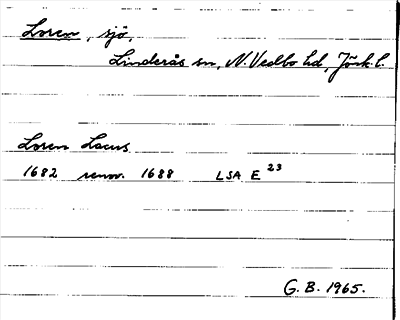 Loren, sjö,
Linderås sn, N. Vedbo hd, Jönk. l.
Loren Lacus
1682 renov. 1688 LSA E 23
G. B. 1965.